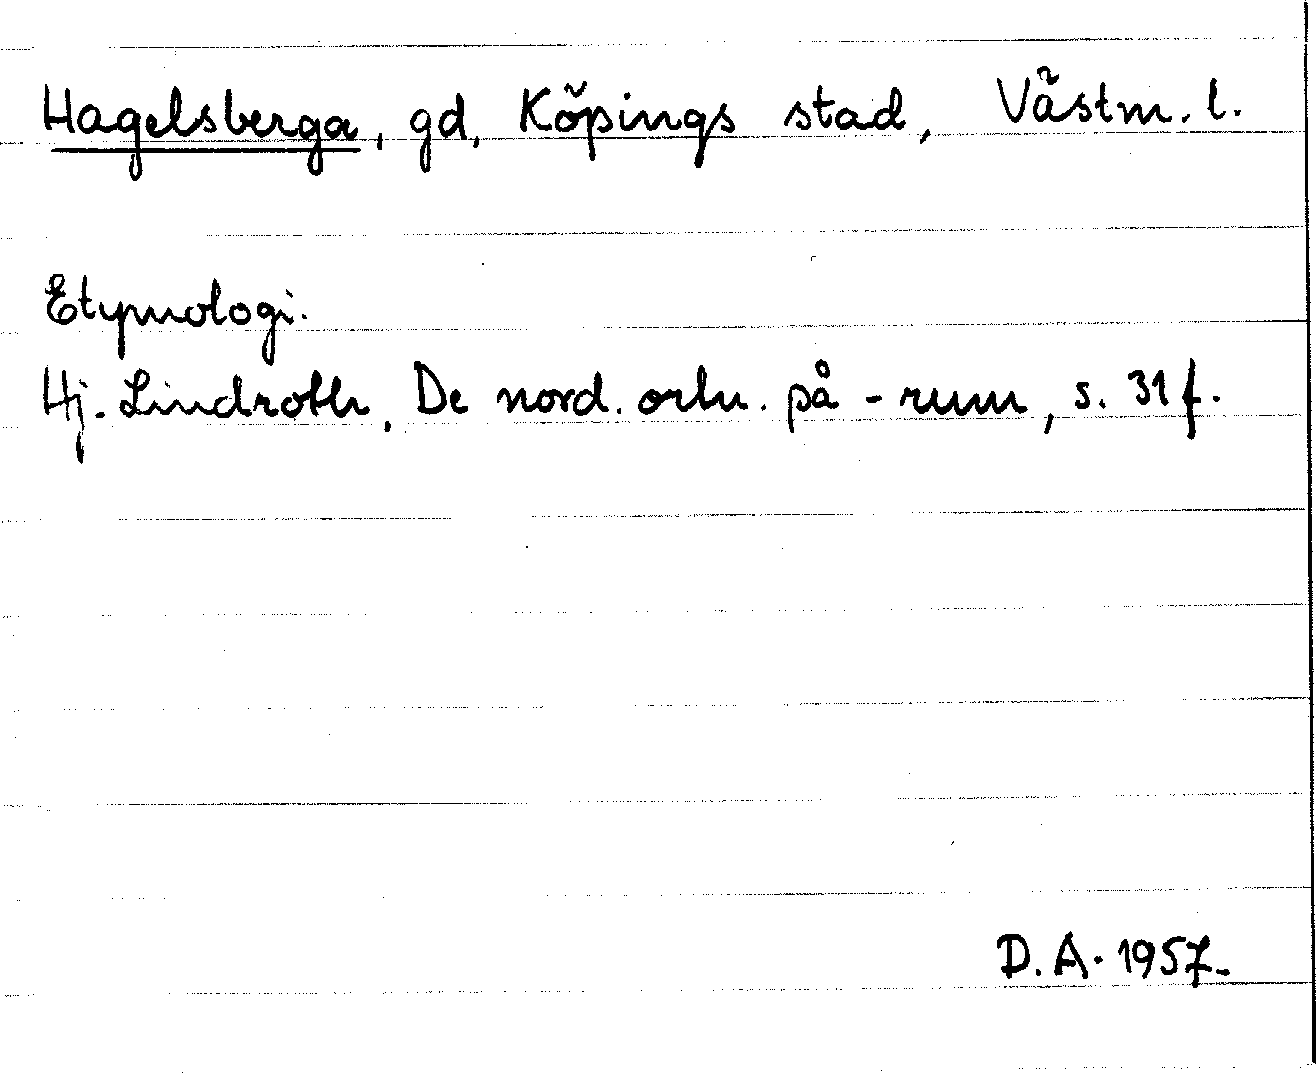 Hagelsberga, gd, Köpings stad, Västm. l.
Etymologi.
Hj. Lindroth, De nord. ortn. på -rum, s. 31 f.
D. A. 1957.